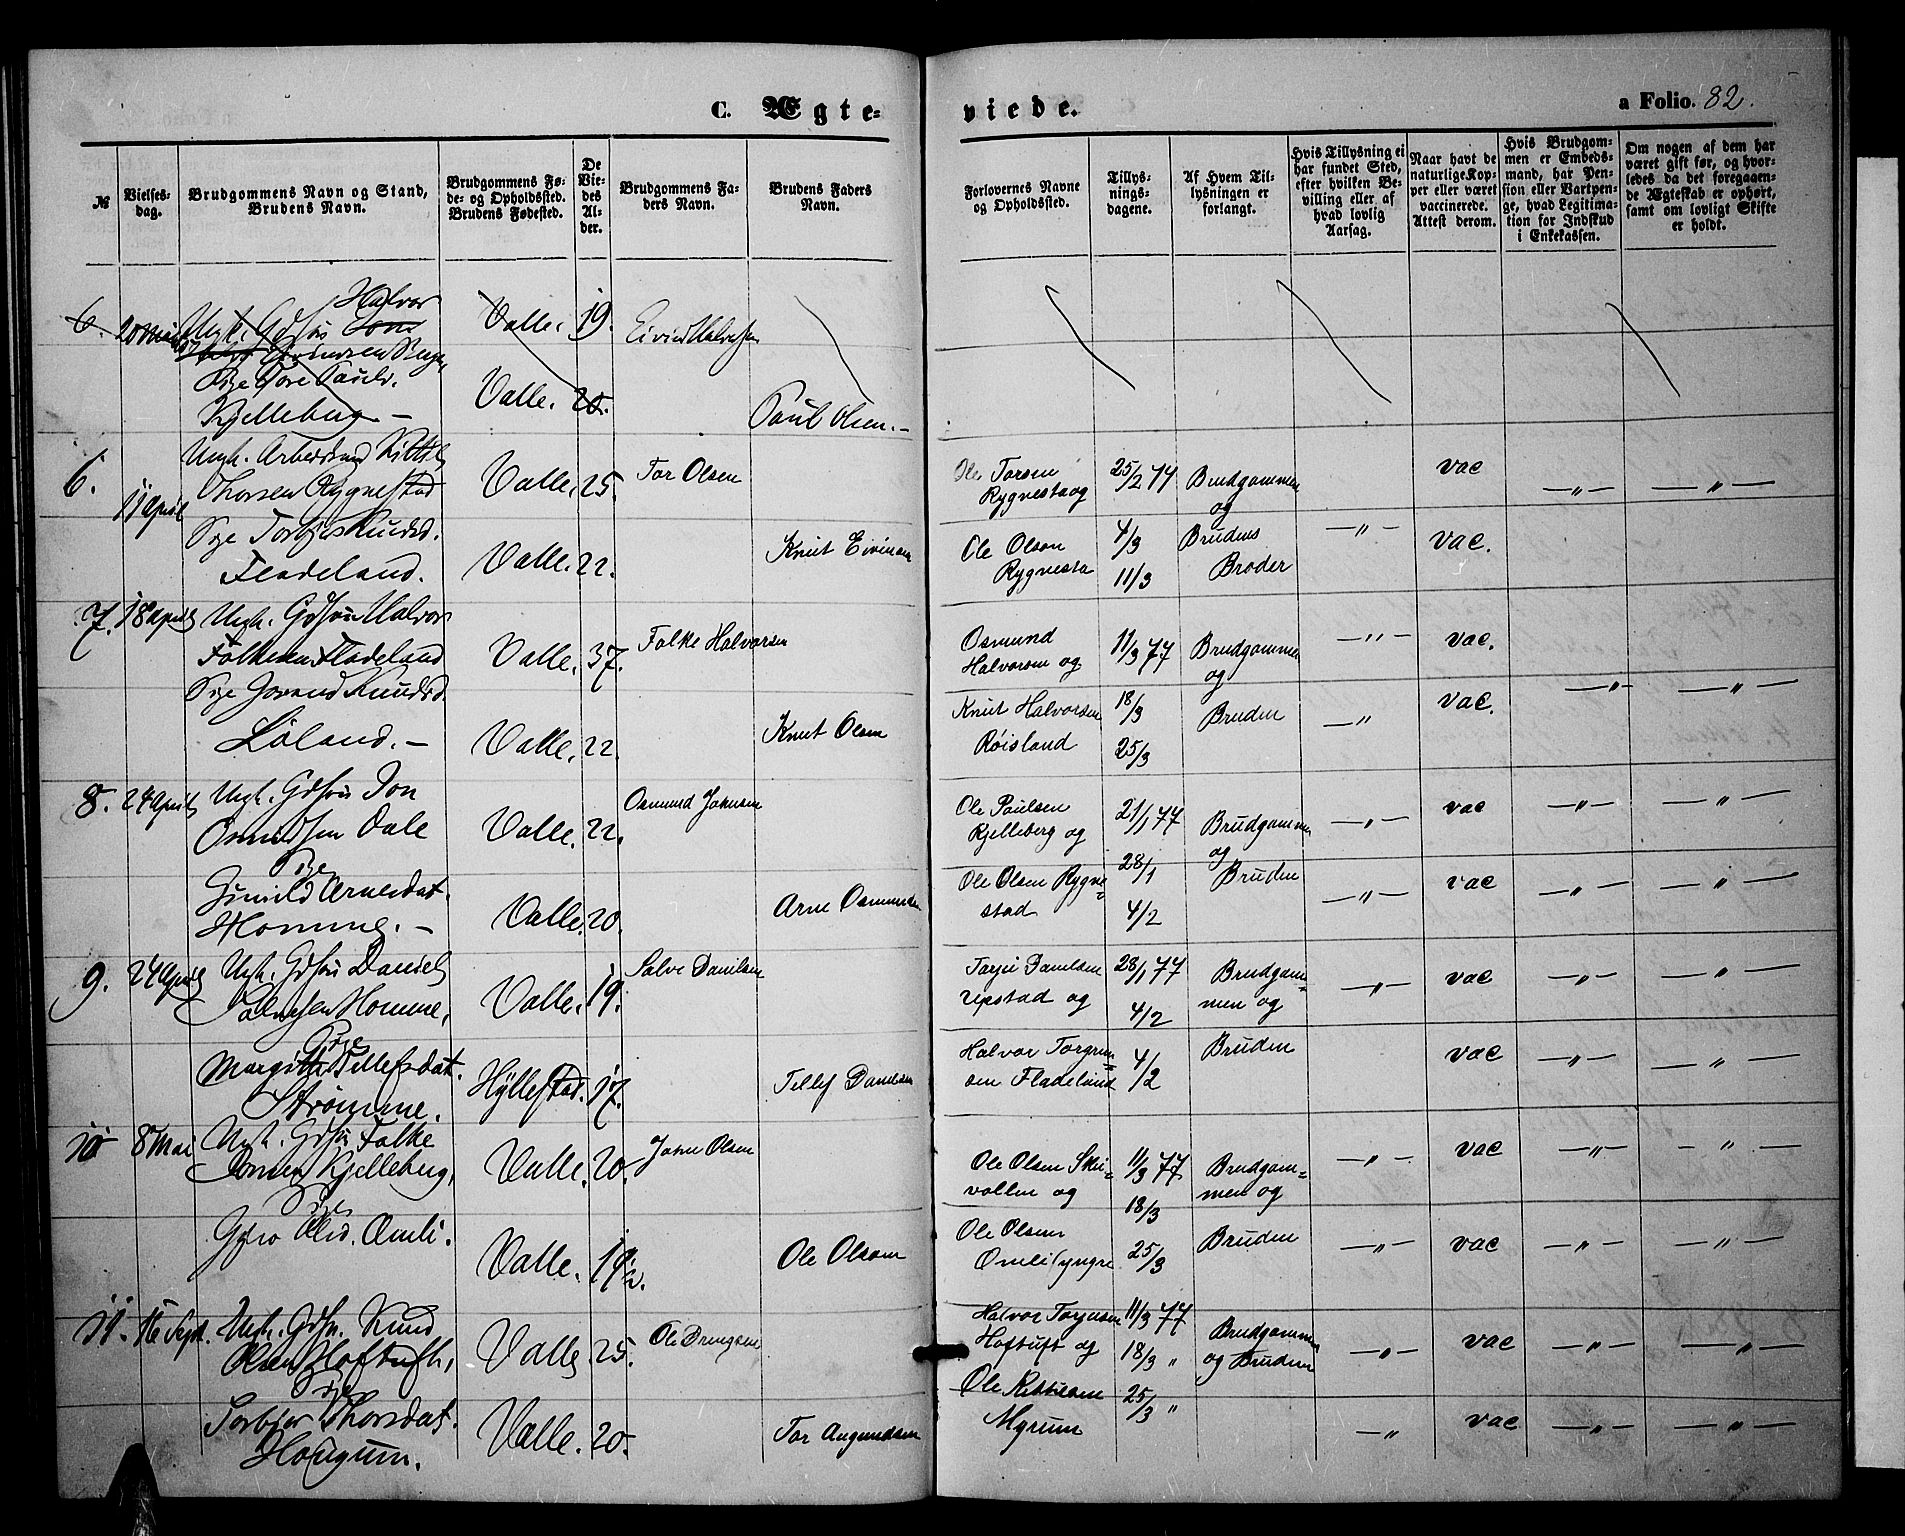 C. Ægte=
viede.
a Folio. 82.
№
Vielses-
dag.
Brudgommens Navn og Stand,
Brudens Navn.
Brudgommens Fø-
de- og Opholdssted.
Brudens Fødested.
De
Vie-
des
Al-
der.
Brudgommens Fa-
ders Navn.
Brudens Faders
Navn.
Forlovernes Navne
og Opholdssted.
Tillys-
nings-
dagene.
Af Hvem Til-
lysningen er
forlangt.
Hvis Tillysning ei
har fundet Sted,
efter hvilken Be-
villing eller af
hvad lovlig
Aarsag.
Naar havt de
naturlige Kop-
per eller været
vaccinerede.
Attest derom.
Hvis Brudgom-
men er Embeds-
mand, har Pen-
sion eller Vartpen-
ge, hvad Legitima-
tion for Indskud
i Enkekassen.
Om nogen af dem har
været gift før, og hvor-
ledes da det foregaaen-
de Ægteskab er ophørt,
samt om lovligt Skifte
er holdt.
Halvor
6. Ungk. Gdssøn Valle. 19. Eivind Halvorsen
Pige Tore Paulsd.
Kjelleberg - Valle. 20. Paul Olsen.-
6. 11 April Ungk. Arbeidsmd Kittil
Thorsen Rygnestad Valle. 25. Tor Olsen
Pige Torbjør Knudsd.
Fladeland. Valle. 22. Knut Eivindsen
Ole Torsen 25/2 77 Brudgommen vac -"- -"-
Rygnestad og og
Ole Olson 4/3 Brudens -"- vac.
Rygnesta 11/3 Broder
7. 18 April Ungk. Gdssøn Halvor
Folkesen Fladeland Valle. 37. Folke Halvorsen
Pige Jorand Knudsd.
Løland.- Valle. 22. Knut Olsen
Osmund 11/3 77 Brudgommen -"- vac.
Halvorsen og og
Knut Halvorsen 18/3 Bruden -"- vac. -"- -"-
Røisland 25/3
8. 24 April Ungk. Gdssøn Jon
Osmundsen Dale Valle. 22. Osmund Johnsen
Pige
Gunild Arnesdat.
Homme.- Valle. 20. Arne Osmundsen
Ole Paulsen 21/1 77 Brudgommen -"- vac -"- -"-
Kjelleberg og og
Ole Olsen Rygne= 28/1 Bruden -"- vac -"- -"-
stad 4/2
9. 24 April Ungk. Gdssøn Daniel
Salvesen Homme, Valle. 19. Salve Danilsen
Pige
Margithe Tellefsdat.
Strømme. Hyllestad. 17. Tellef Danielsen
Tarjei Danielsen 28/1 77 Brudgom= -"- vac -"- -"-
repstad og 4/2 men og
Halvor Torgrim= 4/2 Bruden vac -"- -"-
sen Fladeland
10 8 Mai Ungk. Gdssøn Folke
Jonsen Kjelleberg, Valle. 20. John Olsen
Pige
Gyro Olsd. Omli. Valle. 19 1/2. Ole Olsen
Ole Olsen Ski= 11/3 77 Brudgom= -"- vac -"- -"-
vollen og 18/3 men og
Ole Olsen 25/3 Bruden -"- vac -"- -"-
Omli (yngre
11. 16 Sept. Ungk. Gdsn. Knud
Olsen Hoftuft, Valle 25. Ole Drengsen
Pige
Torbjør Thorsdat.
Hougum. Valle. 20. Tor Augundsen
Halvor Torjusen 11/3 77 Brudgommen -"- vac -"- -"-
Hoftuft og 18/3 " og Bruden
Ole Kittilsen 25/3 "
Myrum -"- vac -"- -"-